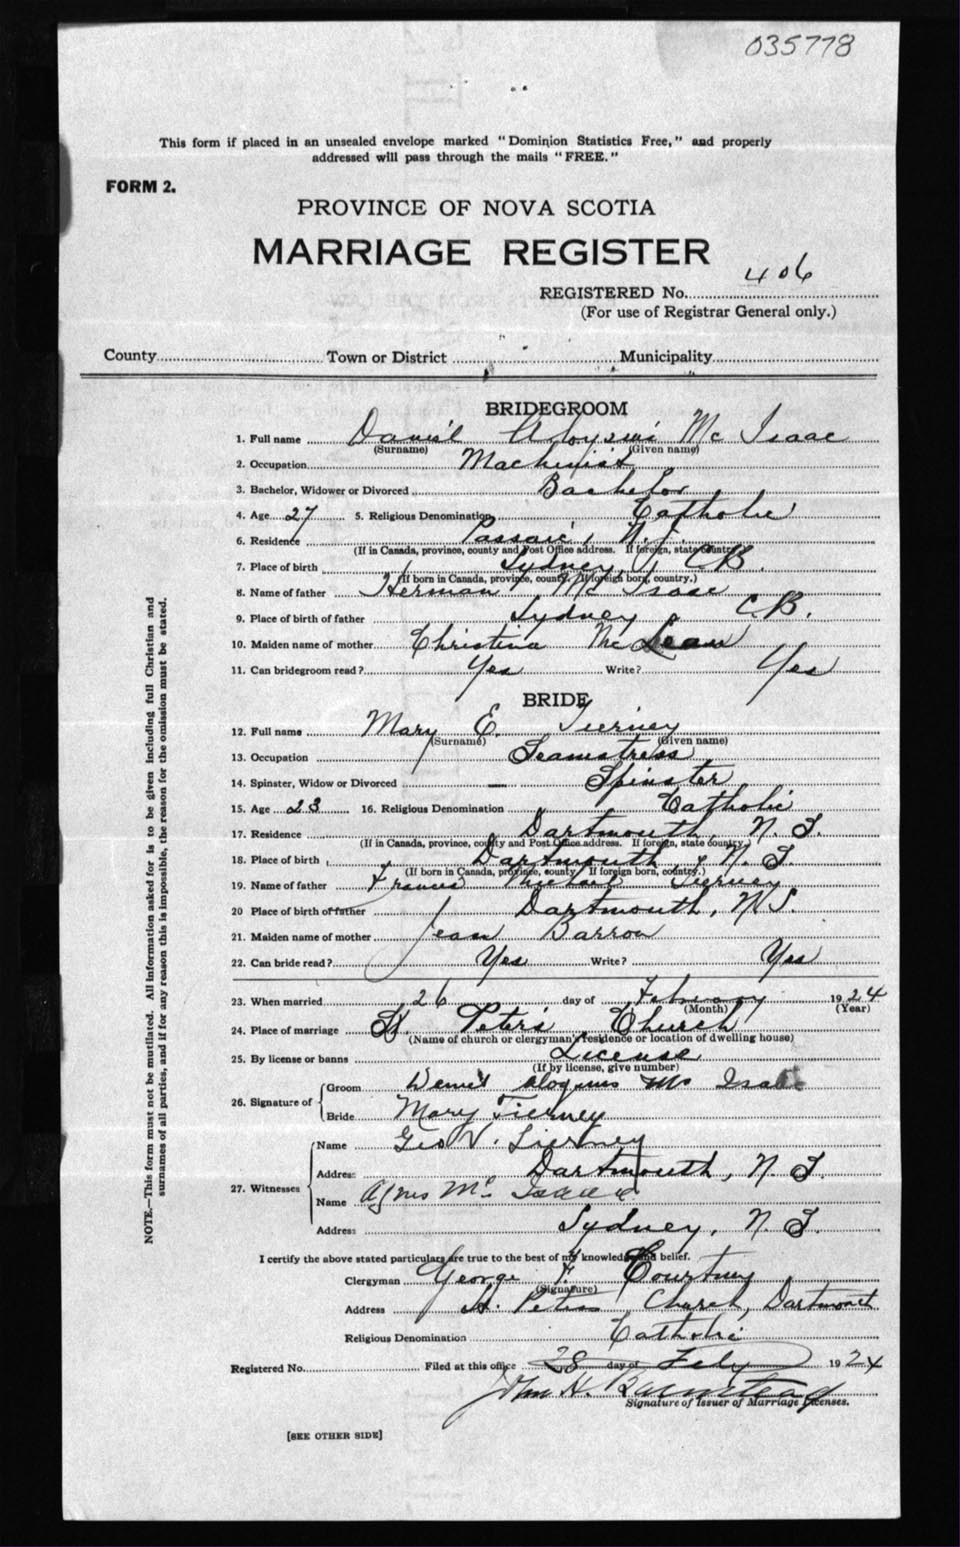 035778
This form if placed in an unsealed envelope marked "Dominion Statistics Free," and properly
addressed will pass through the mails "FREE."
FORM 2.
PROVINCE OF NOVA SCOTIA
MARRIAGE REGISTER
REGISTERED No. 406
(For use of Registrar General only.)
County Town or District Municipality
BRIDEGROOM
1. Full name Daniel Aloysius Mc Isaac
(Surname) (Given name)
2. Occupation Machinist
3. Bachelor, Widower or Divorced Bachelor
4. Age 27 5. Religious Denomination Catholic
6. Residence Passaic, N.J.
(If in Canada, province, county and Post Office address. If foreign, state country)
7. Place of birth Sydney, CB.
(If born in Canada, province, county. If foreign born, country.)
8. Name of father Herman Mc Isaac
9. Place of birth of father Sydney C.B.
10. Maiden name of mother Christina Mc Lean
11. Can bridegroom read? Yes Write? Yes
BRIDE
12. Full name Mary E. Tierney
(Surname) (Given name)
13. Occupation Seamstress
14. Spinster, Widow or Divorced Spinster
15. Age 23 16. Religious Denomination Catholic
17. Residence Dartmouth, N.S.
(If in Canada, province, county and Post Office address. If foreign, state country.)
18. Place of birth Dartmouth, N.S.
(If born in Canada, province, county If foreign born, country.)
19. Name of father Francis Michael Tierney
20 Place of birth of father Dartmouth, N.S.
21. Maiden name of mother Jean Barron
22. Can bride read? Yes Write? Yes
23. When married 26 day of February 1924
(Month) (Year)
24. Place of marriage St. Peter's Church
(Name of church or clergyman's residence or location of dwelling house)
25. By license or banns License
(If by license, give number)
26. Signature of Groom Aloysius Mc Isaac
Bride Mary Tierney
27. Witnesses Name Geo V. Tierney
Address Dartmouth, N.S.
Name Agnes Mc Isaac
Address Sydney, N.S.
I certify the above stated particulars are true to the best of my knowledge and belief.
Clergyman George F. Courtney
(Signature)
Address St. Peters Church, Dartmouth
Religious Denomination Catholic
Registered No. Filed at this office 28 day of Feby 1924
John H.
Signature of Issuer of Marriage Licenses.
[SEE OTHER SIDE]
NOTE.—This form must not be mutilated. All information asked for is to be given including full Christian and
surnames of all parties, and if for any reason this is impossible, the reason for the omission must be stated.